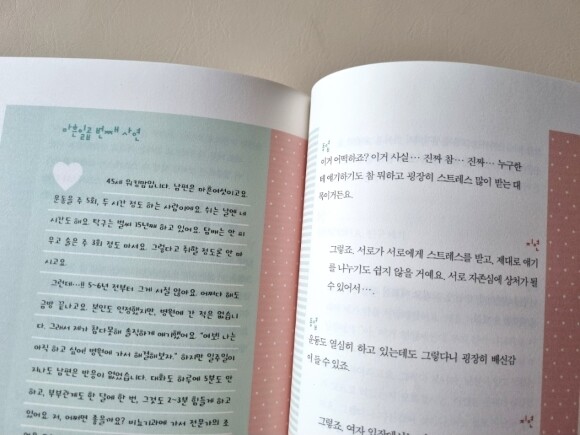 마흔일곱 번째 사연
45세 워킹맘입니다. 남편은 마흔여섯이고요.
운동을 주 5회, 두 시간 정도 하는 사람이에요. 쉬는 날엔 네
시간도 해요. 탁구는 벌써 15년째 하고 있어요. 담배는 안 피
우고 술은 주 3회 정도 마셔요. 그렇다고 취할 정도론 안 마
시고요.
그런데…!! 5~6년 전부터 그게 서질 않아요. 어쩌다 해도
금방 끝나고요. 본인도 인정했지만, 병원에 간 적은 없습니
다. 그래서 제가 참다못해 솔직하게 얘기했어요. "여보! 나는
아직 하고 싶어! 병원에 가서 해결해보자." 하지만 일주일이
지나도 남편은 반응이 없었습니다. 대화도 하루에 5분도 안
하고, 부부관계도 한 달에 한 번, 그것도 2~3분 힘들게 하고
있어요. 저, 어쩌면 좋을까요? 비뇨기과에 가서 전문가의 조
이거 어떡하죠? 이거 사실… 진짜 참… 진짜… 누구한
테 얘기하기도 참 뭐하고 굉장히 스트레스 많이 받는 대
목이거든요.
그렇죠. 서로가 서로에게 스트레스를 받고, 제대로 얘기
를 나누기도 쉽지 않을 거예요. 서로 자존심에 상처가 될
수 있어서….
운동도 열심히 하고 있는데도 그렇다니 굉장히 배신감
이 들 수 있죠.
그렇죠. 여자 입장에서는